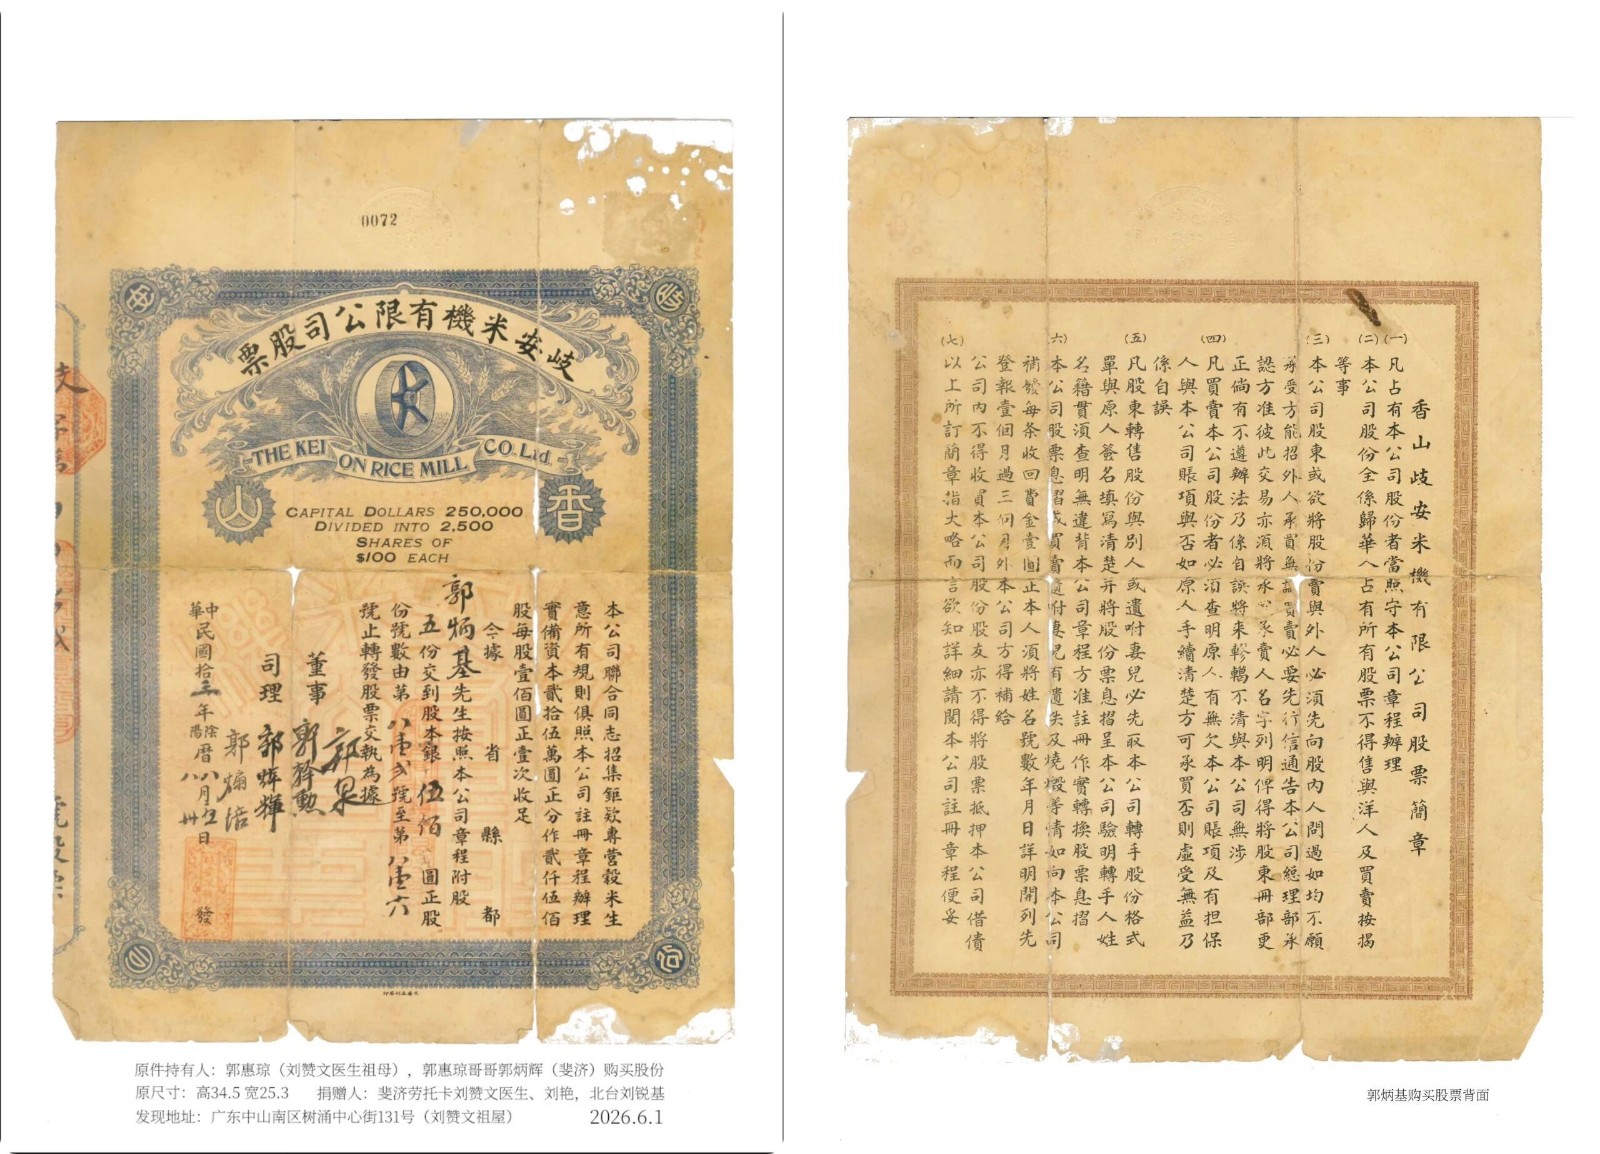 0072
岐安米機有限公司股票
THE KEI ON RICE MILL CO. Ltd.
香
山
CAPITAL DOLLARS 250,000
DIVIDED INTO 2,500
SHARES OF
$100 EACH
本公司聯合同志招集鉅欵專營穀米生
意所有規則俱照本公司註冊章程辦理
實備資本貳拾伍萬圓正分作貳仟伍佰
股每股壹佰圓正壹次收足
今據 省 縣 都
郭炳基先生按照本公司章程附股
五份交到股本銀 伍佰 圓正股
份號數由第 八壹弐 號至第 八壹六
號止轉發股票交執為據
董事 郭泉
司理
中華民國拾三年陰陽曆八月五日 發
八 卅
香山歧安米機有限公司股票簡章
(一)凡占有本公司股份者當照守本公司章程辦理
(二)本公司股份全係歸華人占有所有股票不得售與洋人及買賣按揭
等事
(三)本公司股東或欲將股份賣與外人必須先向股內人問過如均不願
承受方能招外人承買無論買賣必要先行信通告本公司總理部承
認方准彼此交易亦須將承賣人名字列明俾得將股東冊部更
正倘有不遵辦法乃係自誤將来轇轕不清與本公司無涉
(四)凡買賣本公司股份者必須查明原人有無欠本公司賬項及有担保
人與本公司賬項與否如原人手續清楚方可承買否則虛受無益乃
係自誤
(五)凡股東轉售股份與別人或遺咐妻兒必先取本公司轉手股份格式
單與原人簽名填寫清楚并將股份票息摺呈本公司驗明轉手人姓
名籍貫須查明無違背本公司章程方准註冊作實轉換股票息摺
(六)本公司股票息摺或買賣遺咐妻兒有遺失及燒燬等情如向本公司
補發每条收回費金壹圓正本人須將姓名號數年月日詳明開列先
登報壹個月過三個月外本公司方得補給
公司內不得收買本公司股份股友亦不得將股票抵押本公司借債
(七)以上所訂簡章指大略而言欲知詳細請閱本公司註冊章程便妥
原件持有人：郭惠琼（刘赞文医生祖母），郭惠琼哥哥郭炳辉（斐济）购买股份
原尺寸：高34.5 宽25.3 捐赠人：斐济劳托卡刘赞文医生、刘艳，北台刘锐基
发现地址：广东中山南区树涌中心街131号（刘赞文祖屋） 2026.6.1
郭炳基购买股票背面